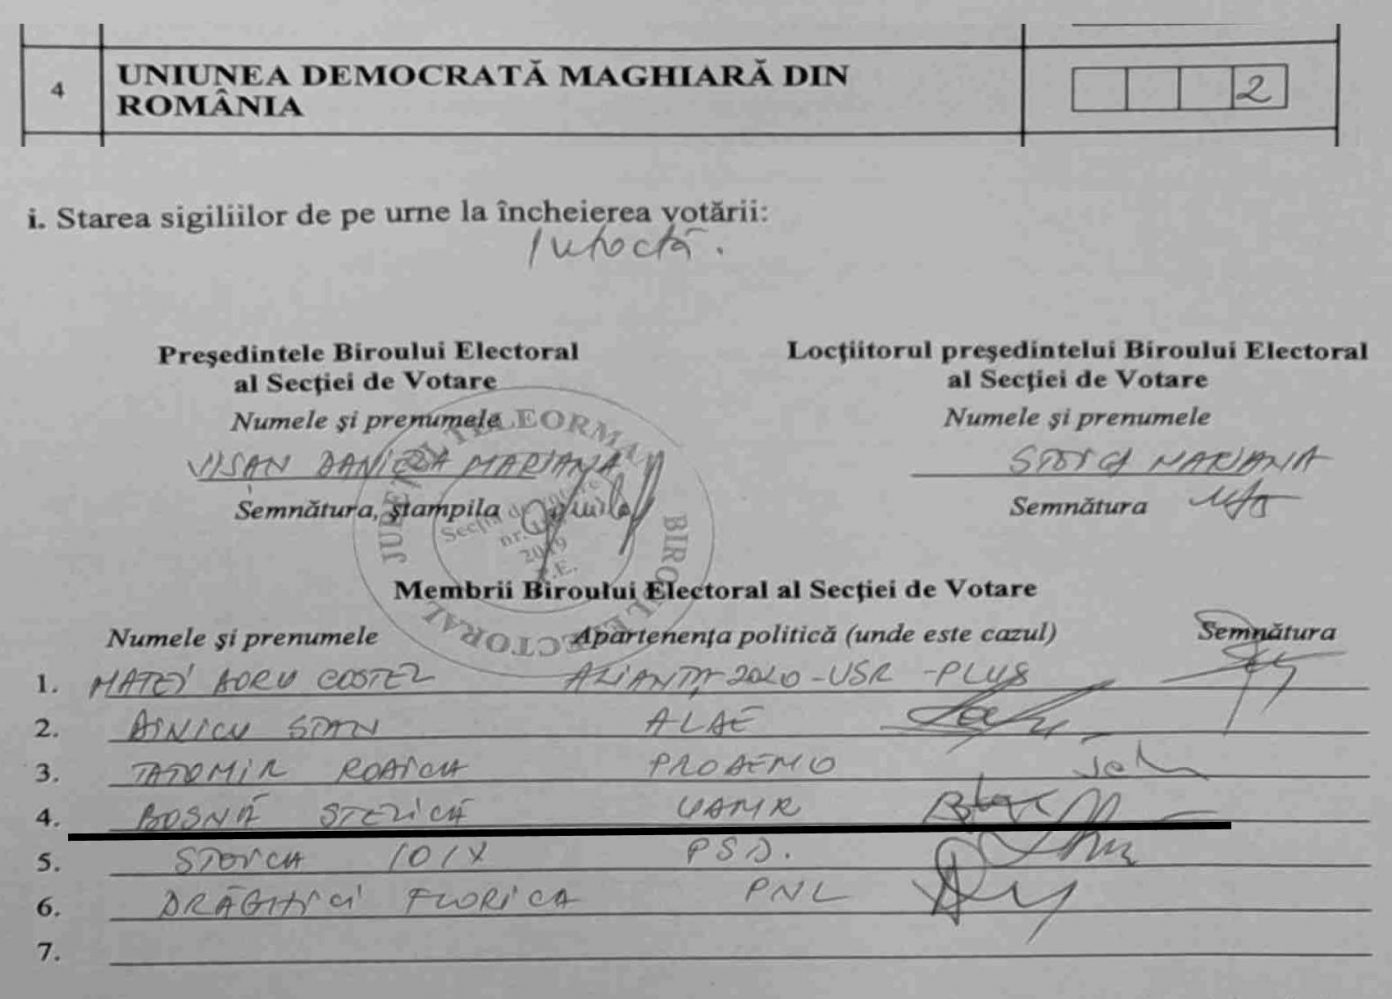 4 UNIUNEA DEMOCRATĂ MAGHIARĂ DIN
ROMÂNIA
2
i. Starea sigiliilor de pe urne la încheierea votării:
Intactă.
Preşedintele Biroului Electoral
al Secţiei de Votare
Numele şi prenumele
VISAN DANIELA MARIANA
Semnătura, ştampila
Locţiitorul preşedintelui Biroului Electoral
al Secţiei de Votare
Numele şi prenumele
STOICA MARIANA
Semnătura
JUDEŢUL TELEORMAN
BIROUL ELECTORAL
Secţia de votare
nr.
2019
Membrii Biroului Electoral al Secţiei de Votare
Numele şi prenumele Apartenenţa politică (unde este cazul) Semnătura
1. MATEI COSTEL ALIANȚA 2020-USR-PLUS
2. DINICU STAN ALDE
3. TATOMIR RODICA PRODEMO
4. BOSNĂ STELICĂ UDMR
5. STOICA PSD.
6. DRĂGHICI FLORICA PNL
7.